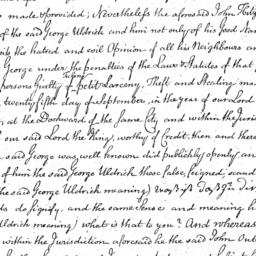 made & provided; Nevertheless the aforesaid John
of the said George Uldrich and him not only of his good
the hatred and evil Opinion of all his Neighbours an
George under the penalties of the Laws & Statutes of that
persons Guilty of petit Larceny, Theft and Stealing ma
twenty fifth day of September in the year of our Lord
at the Dockward of the Same City and within the Juris
our said Lord the King, worthy of Credit, then and there
said George was well known did publickly openly an
of him the said George Uldrich these false, feigned, scand
the said George Uldrich meaning)
do signify, and the same Sense and meaning h
Uldrich meaning) what is that to you? And whereas
within the Jurisdiction aforesaid he the said John